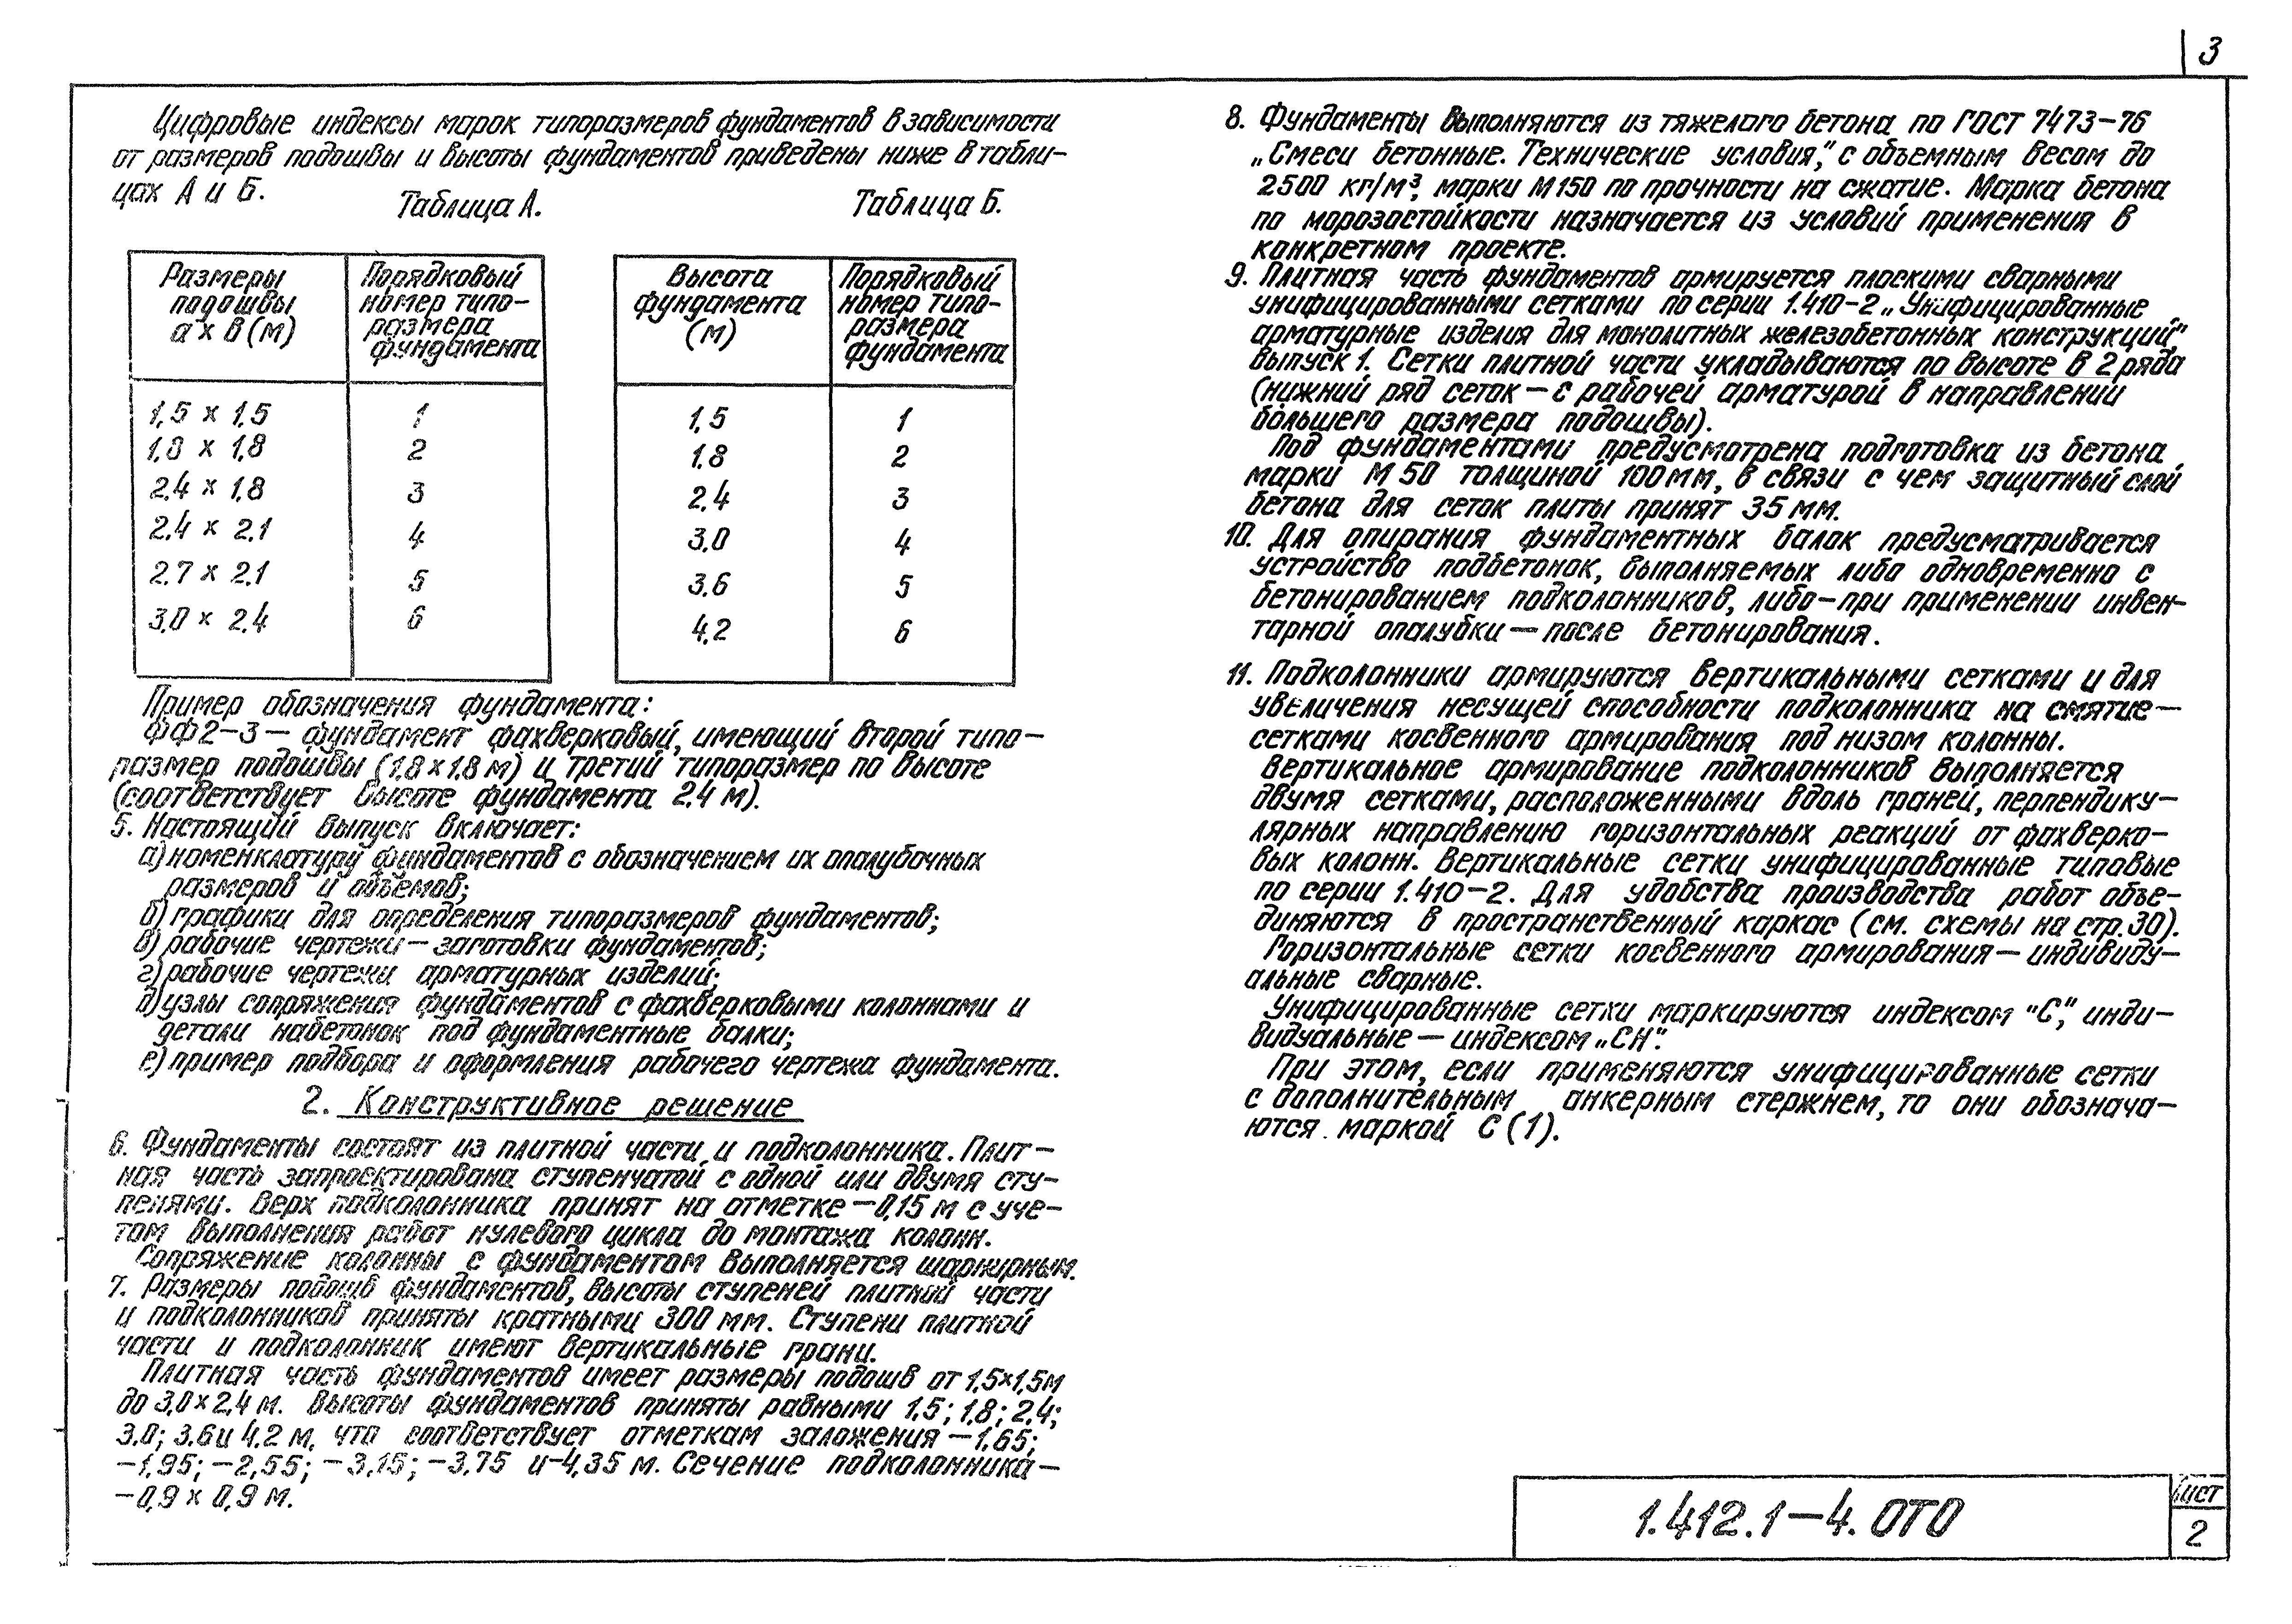 3
Цифровые индексы марок типоразмеров фундаментов в зависимости
от размеров подошвы и высоты фундаментов приведены ниже в табли-
цах А и Б.
Таблица А.
Размеры подошвы а х в (м) | Порядковый номер типо- размера фундамента
1,5 х 1,5 | 1
1,8 х 1,8 | 2
2,4 х 1,8 | 3
2,4 х 2,1 | 4
2,7 х 2,1 | 5
3,0 х 2,4 | 6
Таблица Б.
Высота фундамента (м) | Порядковый номер типо- размера фундамента
1,5 | 1
1,8 | 2
2,4 | 3
3,0 | 4
3,6 | 5
4,2 | 6
Пример обозначения фундамента:
ФФ2-3 — фундамент фахверковый, имеющий второй типо-
размер подошвы (1,8 х 1,8 м) и третий типоразмер по высоте
(соответствует высоте фундамента 2,4 м).
5. Настоящий выпуск включает:
а) номенклатуру фундаментов с обозначением их опалубочных
размеров и объемов;
б) графики для определения типоразмеров фундаментов;
в) рабочие чертежи — заготовки фундаментов;
г) рабочие чертежи арматурных изделий;
д) узлы сопряжения фундаментов с фахверковыми колоннами и
детали набетонок под фундаментные балки;
е) пример подбора и оформления рабочего чертежа фундамента.
2. Конструктивное решение
6. Фундаменты состоят из плитной части и подколонника. Плит-
ная часть запроектирована ступенчатой с одной или двумя сту-
пенями. Верх подколонника принят на отметке —0,15 м с уче-
том выполнения работ нулевого цикла до монтажа колонн.
Сопряжение колонны с фундаментом выполняется шарнирным.
7. Размеры подошв фундаментов, высоты ступеней плитной части
и подколонников приняты кратными 300 мм. Ступени плитной
части и подколонник имеют вертикальные грани.
Плитная часть фундаментов имеет размеры подошв от 1,5х1,5м
до 3,0 х 2,4 м. Высоты фундаментов приняты равными 1,5; 1,8; 2,4;
3,0; 3,6 и 4,2 м, что соответствует отметкам заложения —1,65;
—1,95; —2,55; —3,15; —3,75 и —4,35 м. Сечение подколонника —
—0,9 х 0,9 м.
8. Фундаменты выполняются из тяжелого бетона по ГОСТ 7473-76
„Смеси бетонные. Технические условия,” с объемным весом до
2500 кг/м³, марки М150 по прочности на сжатие. Марка бетона
по морозостойкости назначается из условий применения в
конкретном проекте.
9. Плитная часть фундаментов армируется плоскими сварными
унифицированными сетками по серии 1.410-2 „Унифицированные
арматурные изделия для монолитных железобетонных конструкций,”
выпуск 1. Сетки плитной части укладываются по высоте в 2 ряда
(нижний ряд сеток — с рабочей арматурой в направлении
большего размера подошвы).
Под фундаментами предусмотрена подготовка из бетона
марки М 50 толщиной 100 мм, в связи с чем защитный слой
бетона для сеток плиты принят 35 мм.
10. Для опирания фундаментных балок предусматривается
устройство подбетонок, выполняемых либо одновременно с
бетонированием подколонников, либо — при применении инвен-
тарной опалубки — после бетонирования.
11. Подколонники армируются вертикальными сетками и для
увеличения несущей способности подколонника на смятие —
сетками косвенного армирования под низом колонны.
Вертикальное армирование подколонников выполняется
двумя сетками, расположенными вдоль граней, перпендику-
лярных направлению горизонтальных реакций от фахверко-
вых колонн. Вертикальные сетки унифицированные типовые
по серии 1.410-2. Для удобства производства работ объе-
диняются в пространственный каркас (см. схемы на стр.30).
Горизонтальные сетки косвенного армирования — индивиду-
альные сварные.
Унифицированные сетки маркируются индексом "С", инди-
видуальные — индексом „СН".
При этом, если применяются унифицированные сетки
с дополнительным анкерным стержнем, то они обознача-
ются маркой С (1).
1.412.1-4. ОТО
Лист
2